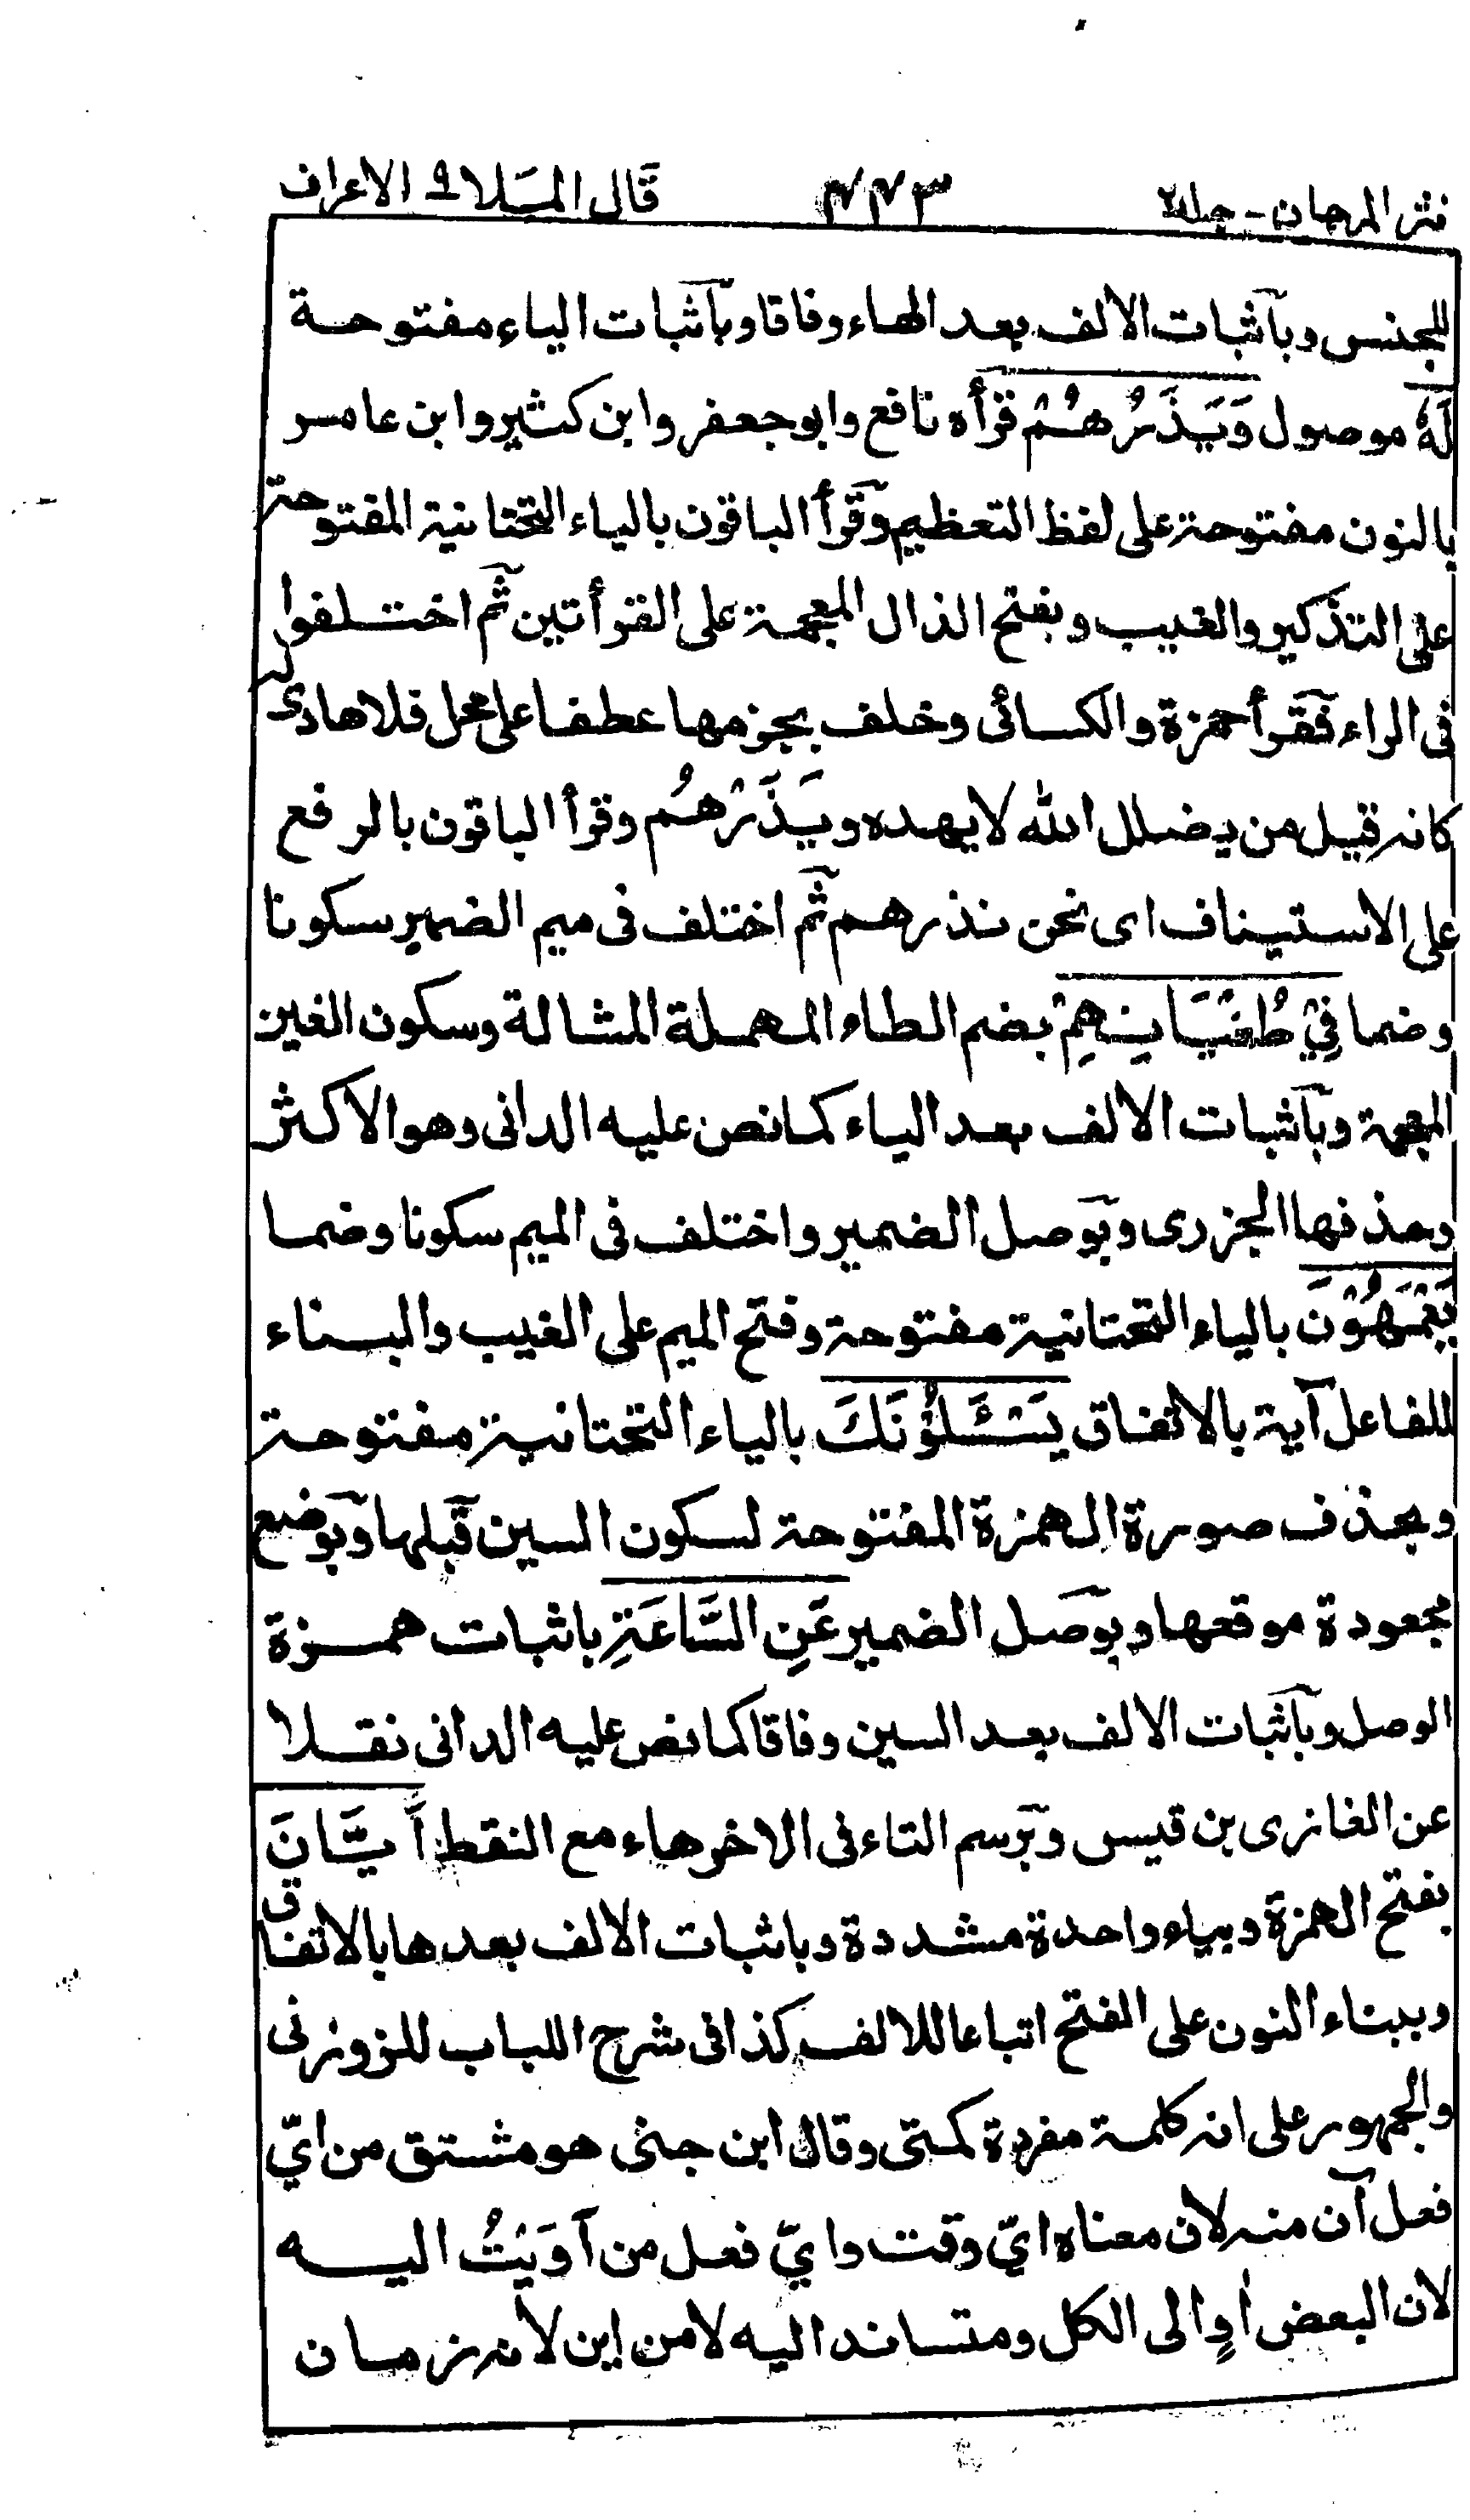 نثر المرجان - جلد٢ ٤٧٣ قَالَ المَلا ٩ الاعراف
للجنس وبآثبات الالف بعد الهاء وفاقا وبآثبات الياء مفتوحة
لَهٗ موصول وَيَذَرُهُمْ قرأه نافع وابو جعفر وابن كثير وابن عامر
بالنون مفتوحة على لفظ التعظيم وقرأ الباقون بالياء التحتانية المفتوحة
على التذكير والغيب وبفتح الذال المعجمة على القرأتين ثم اختلفوا
فى الراء فقرأ حمزة والكسائى وخلف بجزمها عطفا على محل فلا هادى له
كانه قيل من يضلل الله لا يهده ويَذَرْهُم وقرأ الباقون بالرفع
على الاستيناف اى نحن نذرهم ثم اختلف فى ميم الضمير سكونا
وضما فِيْ طُغْيَانِهِمْ بضم الطاء المهملة المشالة وسكون الغين
المعجمة وبآثبات الالف بعد الياء كما نص عليه الدانى وهو الاكثر
وحذفها الجزرى وبوصل الضمير واختلف فى الميم سكونا وضما
يَعْمَهُوْنَ بالياء التحتانية مفتوحة وفتح الميم على الغيب والبناء
للفاعل آية بالاتفاق يَسْئَلُوْنَكَ بالياء التحتانية مفتوحة
وبحذف صورة الهمزة المفتوحة لسكون السين قبلها وبوضع
مجعودة موقعها وبوصل الضمير عَنِ السَّاعَةِ باثبات همزة
الوصل وبآثبات الالف بعد السين وفاقا كما نص عليه الدانى نقلا
عن الغازى بن قيس وبرسم التاء فى الاخر هاء مع النقط أَيَّانَ
بفتح الهمزة وبياء واحدة مشددة وباثبات الالف بعدها بالاتفاق
وببناء النون على الفتح اتباعا للالف كذا فى شرح اللباب للزوزنى
والجمهور على انه كلمة مفردة كمتى وقال ابن جنى هو مشتق من اىّ
فعل آن منه لان معناه اىّ وقت واىّ فعل من اَوَيْتُ اليه
لان البعض اٰوٍ الى الكل ومتساند اليه لا من اين لانه زمان